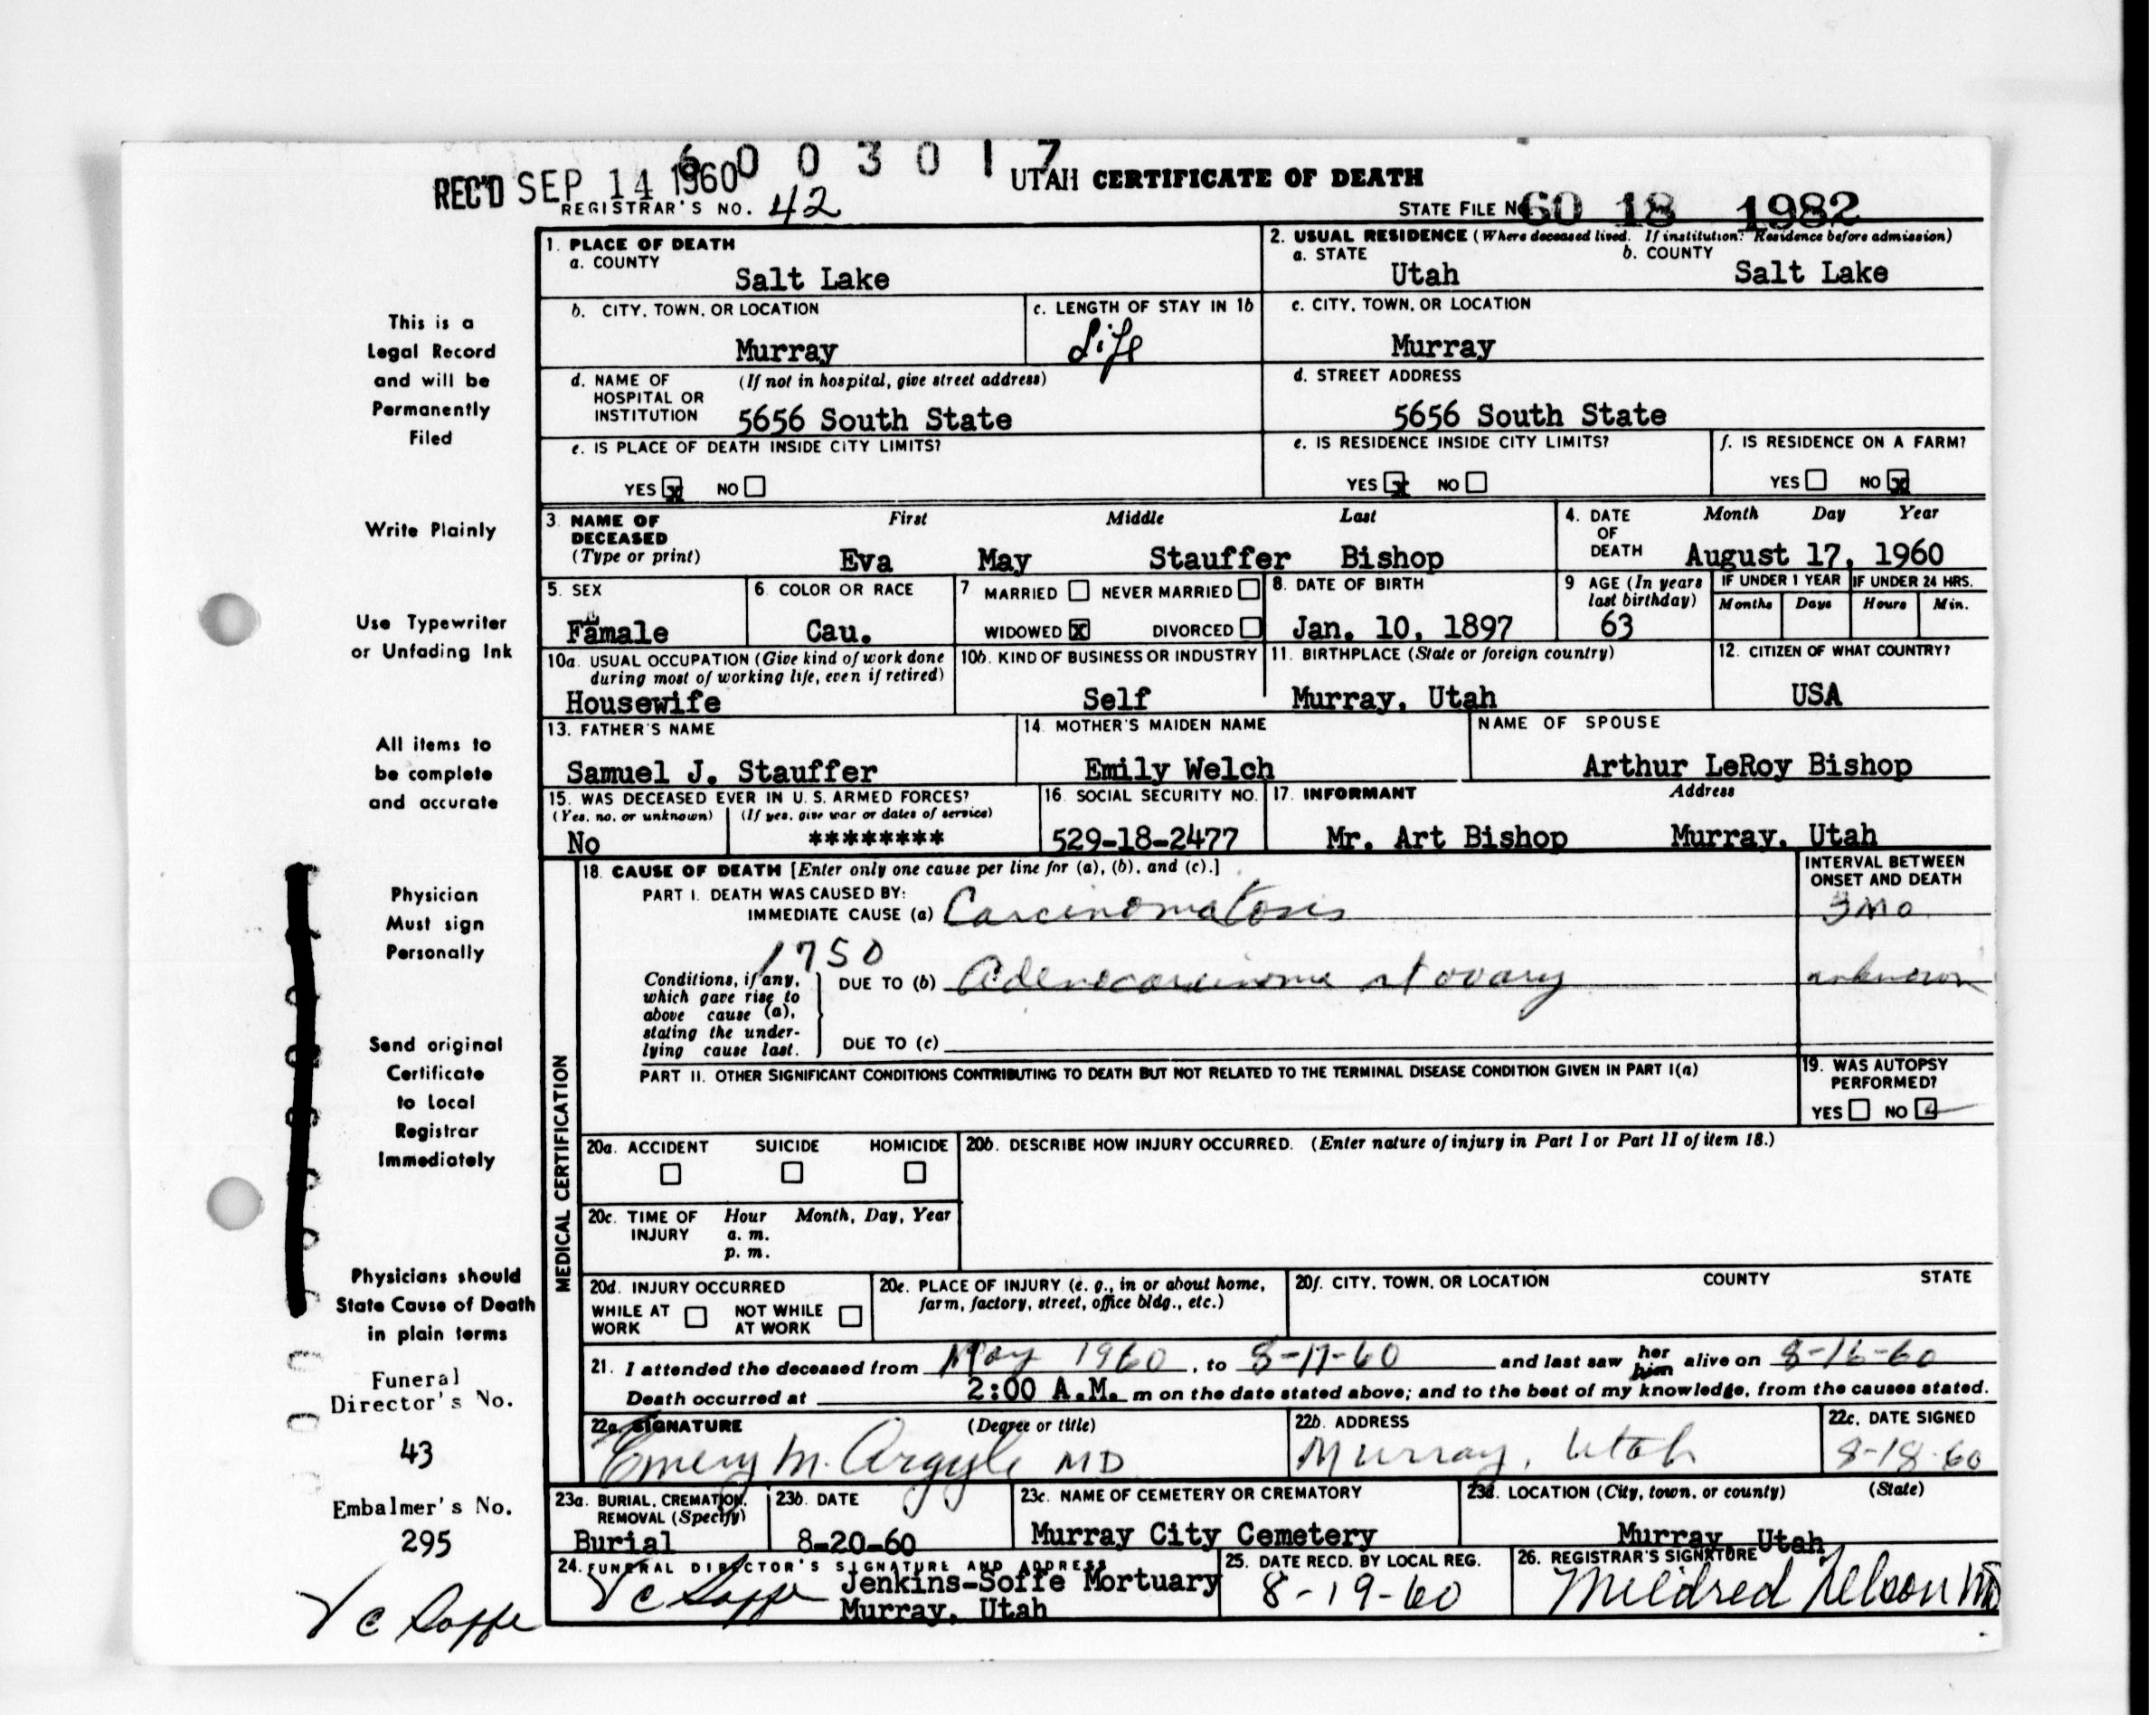 6 0 0 3 0 1 7
REC'D SEP 14 1960 UTAH CERTIFICATE OF DEATH
REGISTRAR'S NO. 42
STATE FILE NO. 60 18 1982
1. PLACE OF DEATH
a. COUNTY
Salt Lake
2. USUAL RESIDENCE (Where deceased lived. If institution: Residence before admission)
a. STATE b. COUNTY
Utah Salt Lake
b. CITY, TOWN, OR LOCATION
Murray
c. LENGTH OF STAY IN 1b
Life
c. CITY, TOWN, OR LOCATION
Murray
d. NAME OF HOSPITAL OR INSTITUTION (If not in hospital, give street address)
5656 South State
d. STREET ADDRESS
5656 South State
e. IS PLACE OF DEATH INSIDE CITY LIMITS?
YES x NO
e. IS RESIDENCE INSIDE CITY LIMITS?
YES x NO
f. IS RESIDENCE ON A FARM?
YES NO x
3. NAME OF DECEASED (Type or print)
First Middle Last
Eva May Stauffer Bishop
4. DATE OF DEATH
Month Day Year
August 17, 1960
5. SEX
Famale
e
6. COLOR OR RACE
Cau.
7 MARRIED NEVER MARRIED
WIDOWED X DIVORCED
8. DATE OF BIRTH
Jan. 10, 1897
9 AGE (In years last birthday)
63
IF UNDER 1 YEAR IF UNDER 24 HRS.
Months Days Hours Min.
10a. USUAL OCCUPATION (Give kind of work done during most of working life, even if retired)
Housewife
10b. KIND OF BUSINESS OR INDUSTRY
Self
11. BIRTHPLACE (State or foreign country)
Murray, Utah
12. CITIZEN OF WHAT COUNTRY?
USA
13. FATHER'S NAME
Samuel J. Stauffer
14. MOTHER'S MAIDEN NAME
Emily Welch
NAME OF SPOUSE
Arthur LeRoy Bishop
15. WAS DECEASED EVER IN U. S. ARMED FORCES?
(Yes, no, or unknown) (If yes, give war or dates of service)
No ********
16. SOCIAL SECURITY NO.
529-18-2477
17. INFORMANT Address
Mr. Art Bishop Murray, Utah
MEDICAL CERTIFICATION
18. CAUSE OF DEATH [Enter only one cause per line for (a), (b), and (c).]
INTERVAL BETWEEN ONSET AND DEATH
PART I. DEATH WAS CAUSED BY:
IMMEDIATE CAUSE (a) Carcinomatosis 3 mo
1750
Conditions, if any, which gave rise to above cause (a), stating the underlying cause last.
DUE TO (b) Adenocarcinoma of ovary unknown
DUE TO (c)
PART II. OTHER SIGNIFICANT CONDITIONS CONTRIBUTING TO DEATH BUT NOT RELATED TO THE TERMINAL DISEASE CONDITION GIVEN IN PART I(a)
19. WAS AUTOPSY PERFORMED?
YES NO
20a. ACCIDENT SUICIDE HOMICIDE
20b. DESCRIBE HOW INJURY OCCURRED. (Enter nature of injury in Part I or Part II of item 18.)
20c. TIME OF INJURY Hour Month, Day, Year
a. m.
p. m.
20d. INJURY OCCURRED
WHILE AT WORK NOT WHILE AT WORK
20e. PLACE OF INJURY (e. g., in or about home, farm, factory, street, office bldg., etc.)
20f. CITY, TOWN, OR LOCATION COUNTY STATE
21. I attended the deceased from May 1960, to 8-17-60 and last saw her him alive on 8-16-60
Death occurred at 2:00 A.M. m on the date stated above; and to the best of my knowledge, from the causes stated.
22a. SIGNATURE (Degree or title)
Emery M. Argyle MD
22b. ADDRESS
Murray, Utah
22c. DATE SIGNED
8-18-60
23a. BURIAL, CREMATION, REMOVAL (Specify)
Burial
23b. DATE
8-20-60
23c. NAME OF CEMETERY OR CREMATORY
Murray City Cemetery
23d. LOCATION (City, town, or county) (State)
Murray, Utah
24. FUNERAL DIRECTOR'S SIGNATURE AND ADDRESS
V C Soffe Jenkins-Soffe Mortuary
Murray, Utah
25. DATE RECD. BY LOCAL REG.
8-19-60
26. REGISTRAR'S SIGNATURE
Mildred Nelson
This is a
Legal Record
and will be
Permanently
Filed
Write Plainly
Use Typewriter
or Unfading Ink
All items to
be complete
and accurate
Physician
Must sign
Personally
Send original
Certificate
to Local
Registrar
Immediately
Physicians should
State Cause of Death
in plain terms
Funeral
Director's No.
43
Embalmer's No.
295
V C Soffe